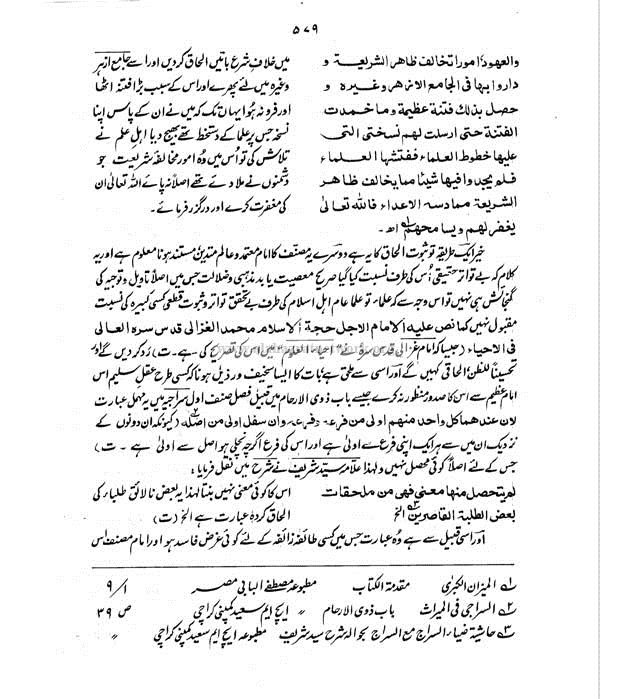 ۵۷۹
والعهود امورا تخالف ظاهر الشريعة و
داروا بها فى الجامع الازهر وغيره و
حصل بذلك فتنة عظيمة وما خمدت
الفتنة حتى ارسلت لهم نسختى التى
عليها خطوط العلماء ففتشها العلماء
فلم يجدوا فيها شيئا مما يخالف ظاهر
الشريعة مما دسه الاعداء فالله تعالىٰ
يغفر لهم ويسامحهم اھ۔
میں خلافِ شرع باتیں الحاق کردیں اور اسے جامع ازہر
وغیرہ میں لئے پھرے اور اس کے سبب بڑا فتنہ اٹھا
اور فرو نہ ہُوا یہاں تک کہ میں نے ان کے پاس اپنا
نسخہ جس پر علما کے دستخط تھے بھیج دیا اہلِ علم نے
تلاش کی تو اُس میں وُہ امور مخالفہ شریعت جو
دشمنوں نے ملادئے تھے اصلاً نہ پائے اللہ تعالیٰ ان
کی مغفرت کرے اور درگزر فرمائے۔
خیر ایک طریقہ تو ثبوت الحاق کا یہ ہے دوسرے یہ مصنف کا امام معتمد و عالم متدین مستند ہونا معلوم ہے اور یہ
کلام کہ بے تواتر حقیقی اُس کی طرف نسبت کیا گیا صریح معصیت یا بد مذہبی وضلالت جس میں اصلاً تاویل و توجیہ کی
گنجائش ہی نہیں تو اس وجہ سے کہ علماء تو علما عام اہلِ اسلام کی طرف بے تحقق تواتر و ثبوت قطعی کسی کبیرہ کی نسبت
مقبول نہیں کما نص عليه الامام الاجل حجة الاسلام محمد الغزالى قدس سره العالى
فى الاحياء (جیسا کہ امام غزالی قدس سرہ نے "احیاء العلوم" میں اس کی تصریح کی ہے۔ت) رَد کردیں گے اور
تحسیناً للظن اُسے الحاقی کہیں گے اور اسی سے ملتی ہے بات کا ایسا سخیف و رذیل ہونا کہ کسی طرح عقلِ سلیم اس
امام عظیم سے اس کا صدور منظور نہ کرے جیسے باب ذوی الارحام میں قبیل فصل صنف اول سراجیہ میں یہ مہمل عبارت
لان عندهما كل واحد منهم اولى من فرعه وفرعه وان سفل اولى من اصله (کیونکہ ان دونوں کے
نزدیک ان میں سے ہر ایک اپنی فرع سے اولیٰ ہے اور اس کی فرع اگرچہ نچلی ہو اصل سے اولیٰ ہے۔ ت)
جس کے لئے اصلاً کوئی محصل نہیں ولہٰذا علامہ سید شریف نے شرح میں نقل فرمایا:
لم يتحصل منها معنى فهى من ملحقات
بعض الطلبة القاصرين الخ
اس کا کوئی معنی نہیں بنتا لہٰذا یہ بعض نالائق طلباء کی
الحاق کردہ عبارت ہے الخ (ت)
اور اسی قبیل سے ہے وُہ عبارت جس میں کسی طائفہ زائفہ کے لئے کوئی غرض فاسد ہو اور امام مصنف اس
۱؎ المیزان الکبرٰی مقدمۃ الکتاب مطبوعہ مصطفے البابی مصر ۱/۹
۲؎ السراجی فی المیراث باب ذوی الارحام ″ ایچ ایم سعید کمپنی کراچی ص ۳۹
۳؎ حاشیۃ ضیاء السراج مع السراج بحوالہ شرح سید شریف مطبوعہ ایچ ایم سعید کمپنی کراچی ″